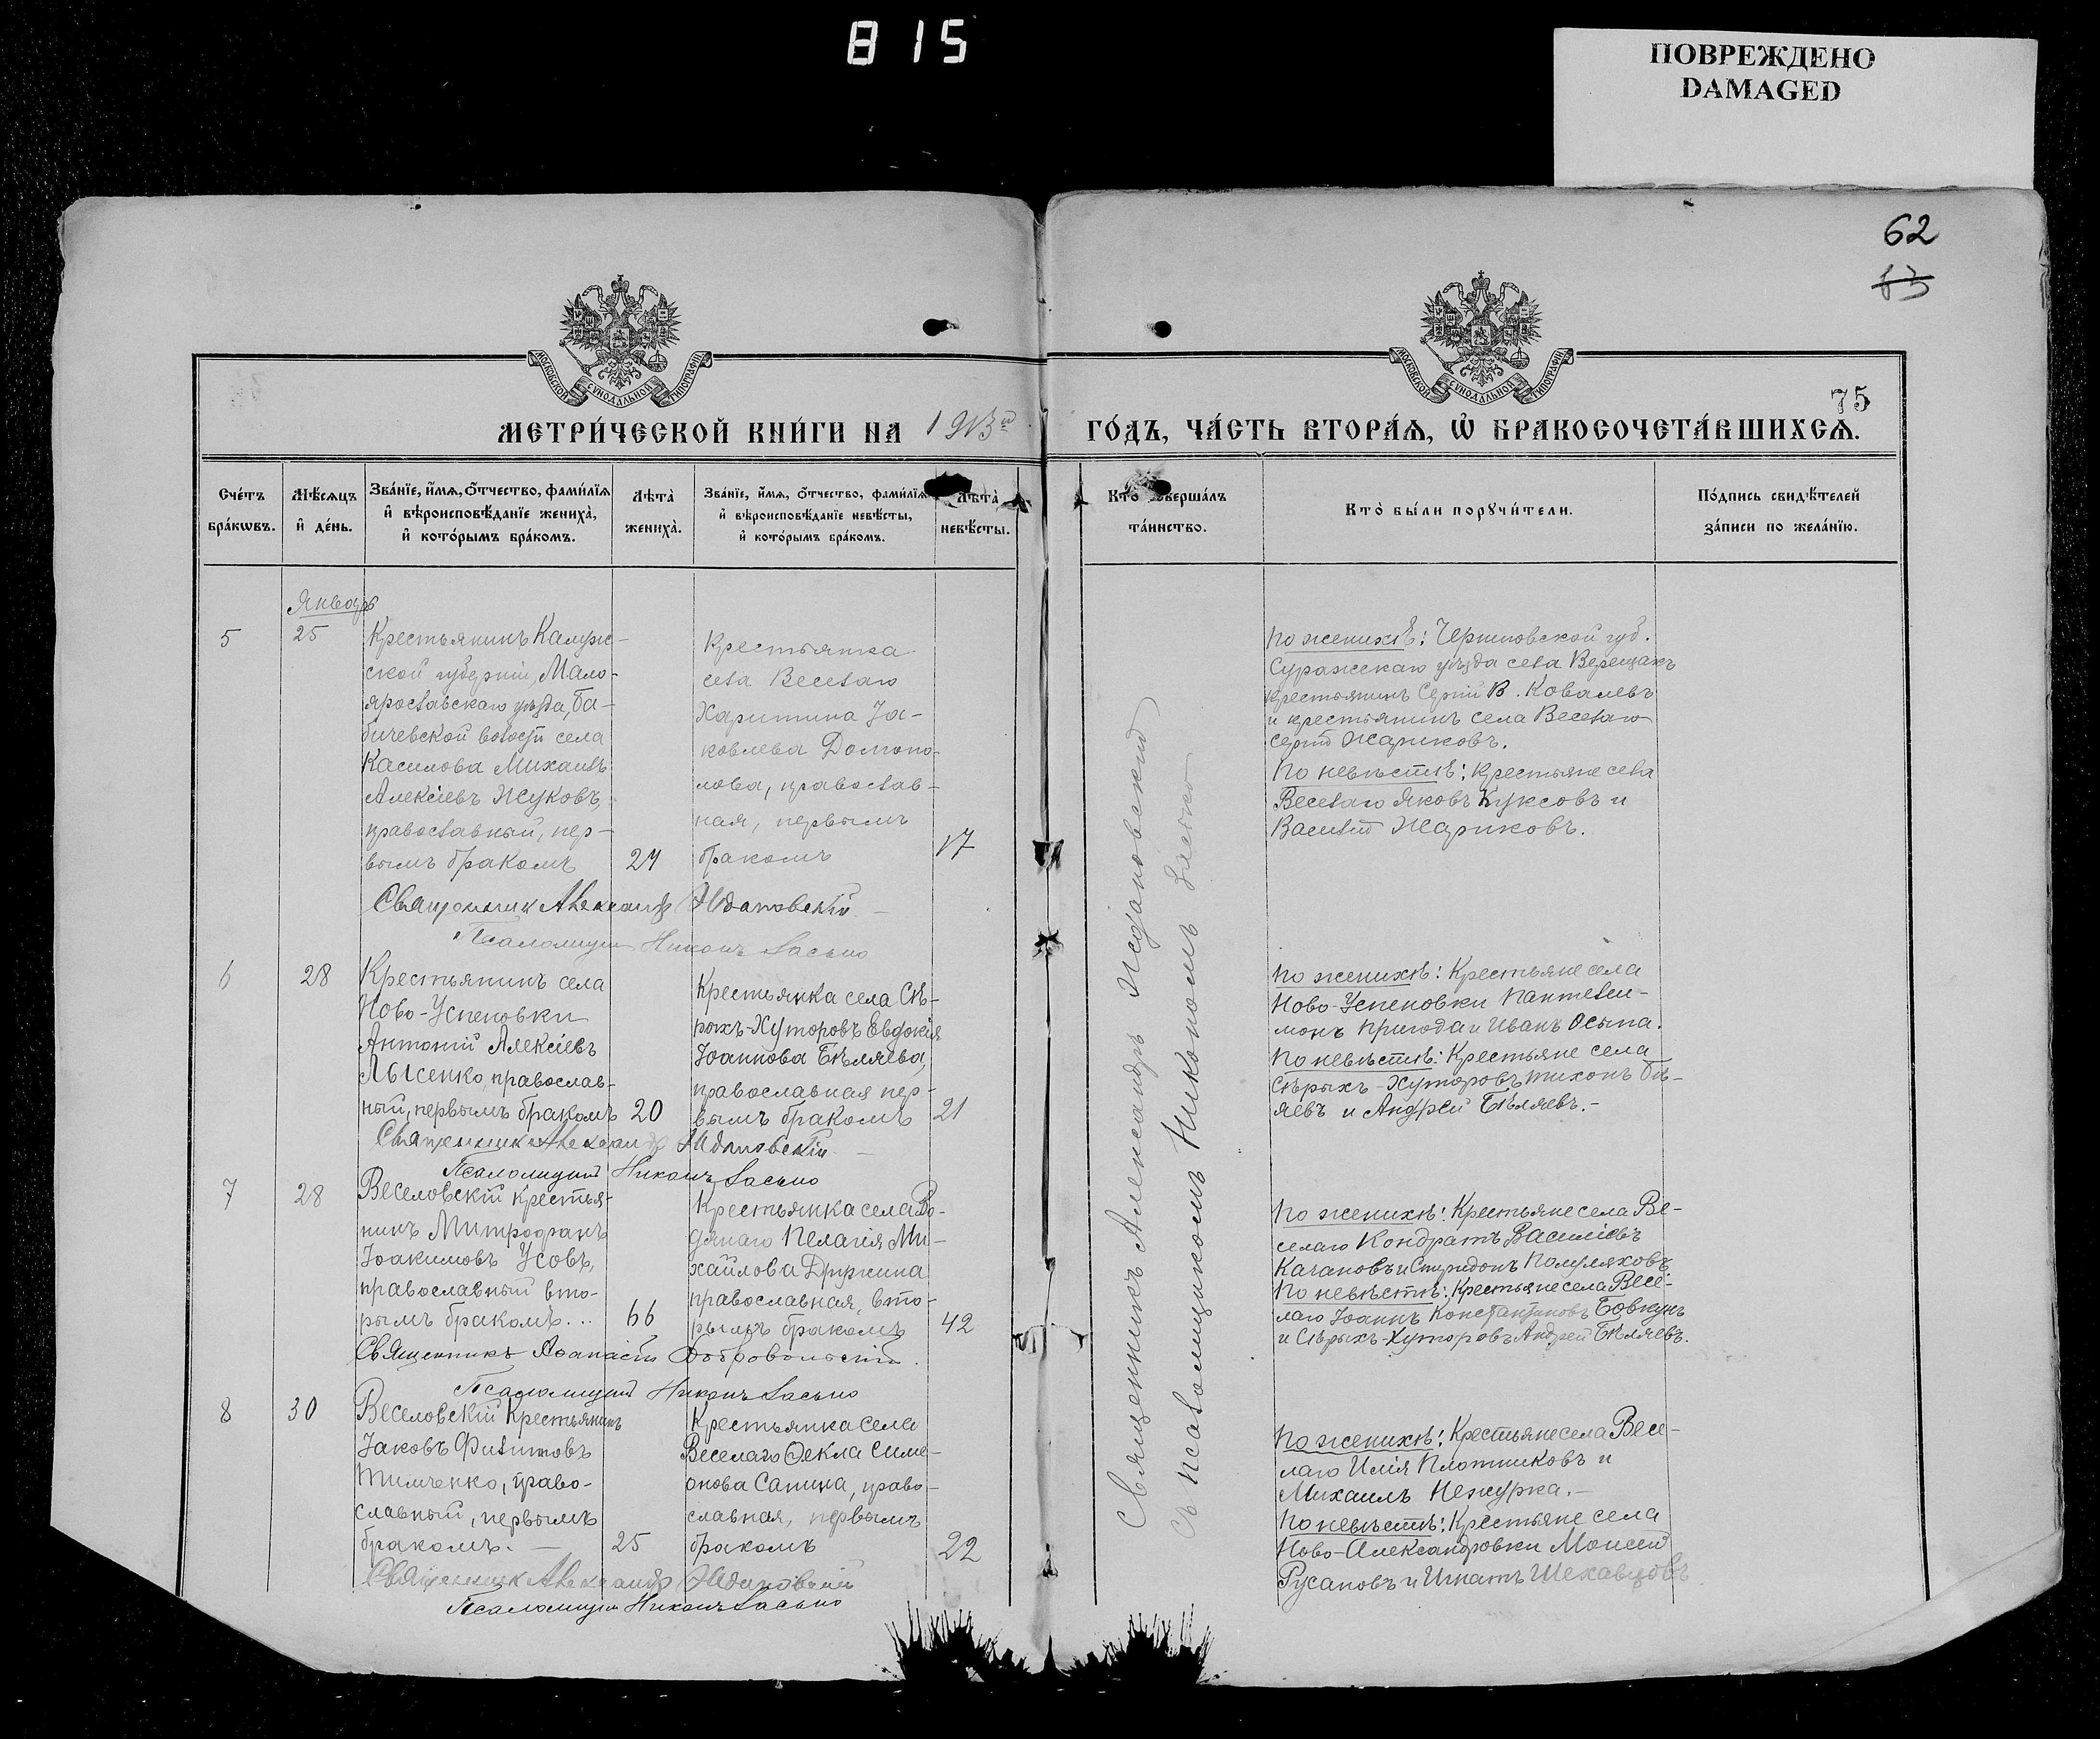 815
ПОВРЕЖДЕНО
DAMAGED
62
75
МОСКОВСКОЙ СѴНОДАЛЬНОЙ ТИПОГРАФІИ
МОСКОВСКОЙ СѴНОДАЛЬНОЙ ТИПОГРАФІИ
МЕТРИ́ЧЕСКОЙ КНИ́ГИ НА 1913й
ГО́ДЪ, ЧА́СТЬ ВТОРА́Ѧ, Ѡ҆ БРАКОСОЧЕТА́ВШИХСѦ.
Сче́тъ
бра́кѡвъ.
Мѣ́сѧцъ
и҆ де́нь.
Зва́нїе, и҆́мѧ, ѻ҆́тчество, фами́лїѧ
и҆ вѣроисповѣ́данїе жениха̀,
и҆ кото́рымъ бра́комъ.
Лѣта̀
жениха̀.
Зва́нїе, и҆́мѧ, ѻ҆́тчество, фами́лїѧ
и҆ вѣроисповѣ́данїе невѣ́сты,
и҆ кото́рымъ бра́комъ.
Лѣта̀
невѣ́сты.
Кто̀ соверша́лъ
та́инство.
Кто̀ бы́ли порꙋчи́тели.
По́дпись свидѣ́телей
за́писи по жела́нїю.
Январь
5
25
Крестьянинъ Калуж-
ской губерніи, Мало-
ярославскаго уѣзда, Ба-
бичевской волости села
Касилова Михаилъ
Алексіевъ Жуковъ,
православный, пер-
вымъ бракомъ
24
Крестьянка
села Веселаго
Харитина Іа-
ковлева Домопо-
лова, православ-
ная, первымъ
бракомъ
17
по женихѣ: Черниговской губ.
Суражскаго уѣзда села Верещакъ
крестьянинъ Сергій В. Ковалевъ
и крестьянинъ села Веселаго
Сергій Жариковъ.
По невѣстѣ: крестьяне села
Веселаго Яковъ Куксовъ и
Василій Жариковъ.
Священникъ Александръ Ждановскій
Псаломщикъ Никонъ Ласько
6
28
Крестьянинъ села
Ново-Успеновки
Антоній Алексіевъ
Лысенко, православ-
ный, первымъ бракомъ
20
Крестьянка села Сѣ-
рыхъ-Хуторовъ Евдокія
Іоаннова Бѣляева,
православная пер-
вымъ бракомъ
21
По женихѣ: Крестьяне села
Ново-Успеновки Пантелеи-
монъ Пригода и Иванъ Осыпа.
По невѣстѣ: Крестьяне села
Сѣрыхъ-Хуторовъ Тихонъ Бѣ-
яевъ и Андрей Бѣляевъ.-
Священникъ Александръ Ждановскій
Псаломщикъ Никонъ Ласько
7
28
Веселовскій крестья-
нинъ Митрофанъ
Іоакимовъ Усовъ,
православный вто-
рымъ бракомъ...
66
Крестьянка села Во-
дянаго Пелагія Ми-
хайлова
православная, вто-
рымъ бракомъ
42
По женихѣ: Крестьяне села Ве-
селаго Кондратъ Василіевъ
Качановъ и Спиридонъ Полуляховъ
По невѣстѣ: Крестьяне села Весе-
лаго Іоаннъ Константиновъ Бовкунъ
и Сѣрыхъ-Хуторовъ Андрей Бѣляевъ.
Священникъ Аѳанасій Добровольскій.
Псаломщикъ Никонъ Ласько
8
30
Веселовскій Крестьянинъ
Іаковъ Филиповъ
Тимченко, право-
славный, первымъ
бракомъ.
25
Крестьянка села
Веселаго Ѳекла Симе-
онова Сапина, право-
славная, первымъ
бракомъ
22
По женихѣ: Крестьяне села Весе-
лаго Илія Плотниковъ и
Михаилъ Нежурка.-
По невѣстѣ: Крестьяне села
Ново-Александровки Моисей
Русановъ и Игнатъ Шекавцовъ
Священникъ Александръ Ждановскій
Псаломщикъ Никонъ Ласько
Священникъ Александръ Ждановскій
съ псаломщикомъ Никономъ Ласько